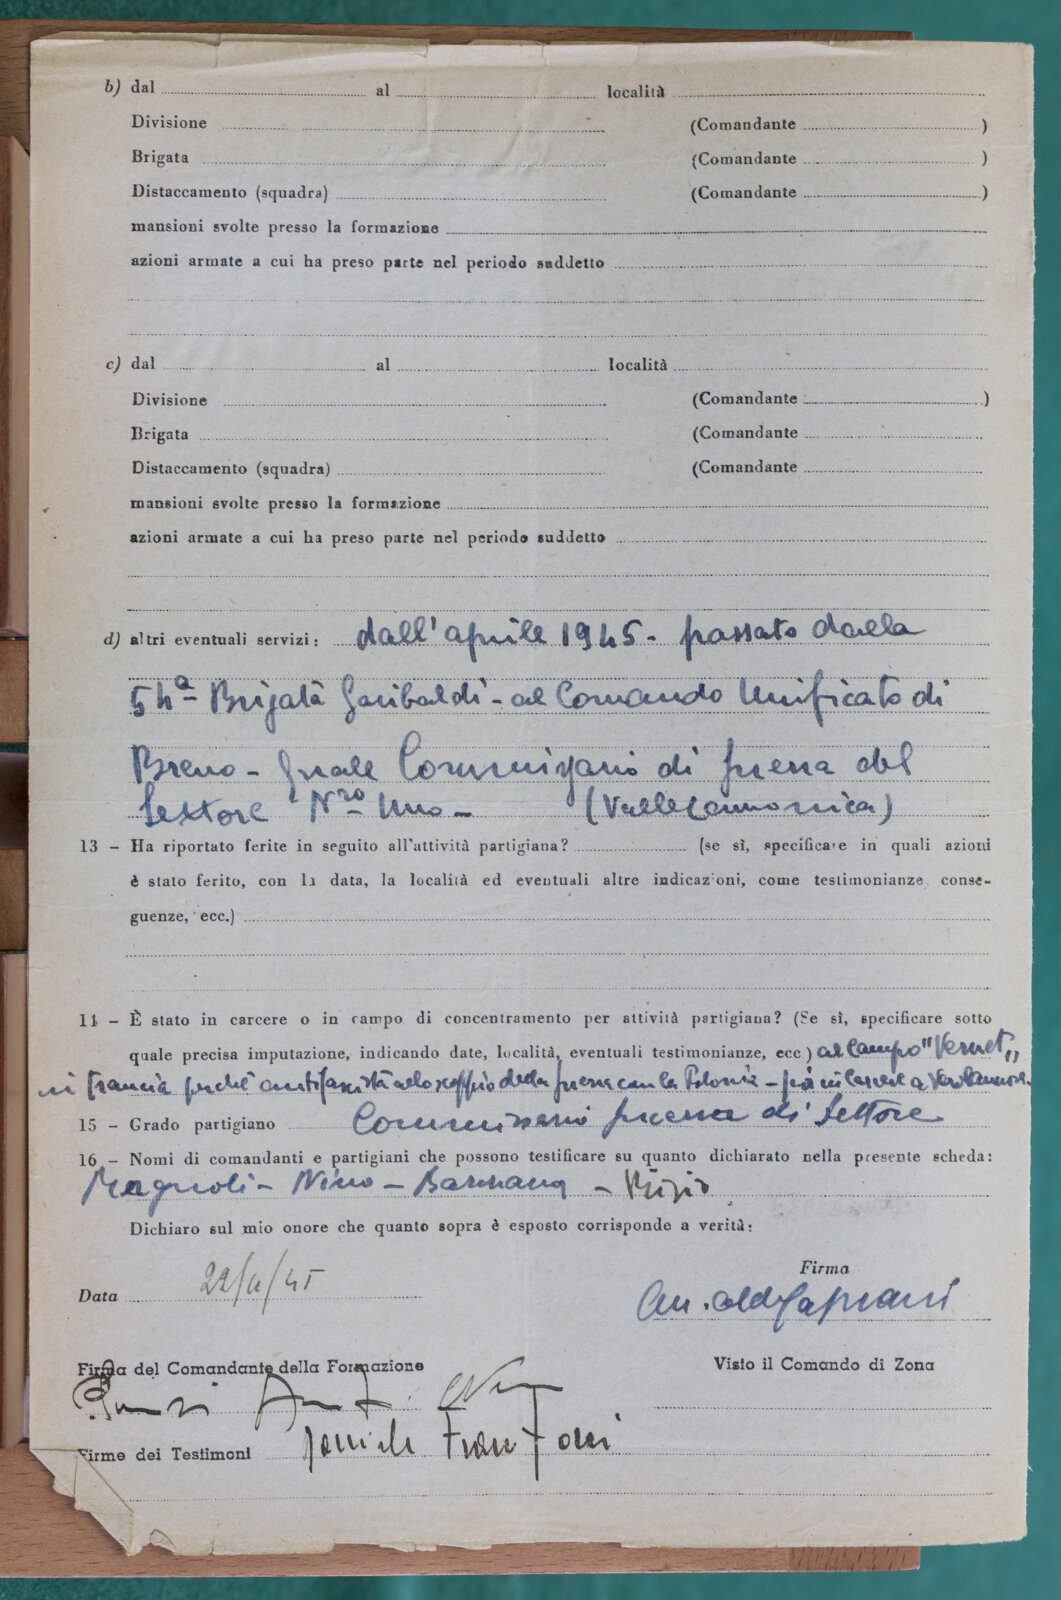 b) dal al località
Divisione (Comandante )
Brigata (Comandante )
Distaccamento (squadra) (Comandante )
mansioni svolte presso la formazione
azioni armate a cui ha preso parte nel periodo suddetto
c) dal al località
Divisione (Comandante )
Brigata (Comandante
Distaccamento (squadra) (Comandante
mansioni svolte presso la formazione
azioni armate a cui ha preso parte nel periodo suddetto
d) altri eventuali servizi: dall'aprile 1945 - passato dalla
54ª Brigata Garibaldi - al Comando Unificato di
Breno - quale Commissario di guerra del
Settore Nro Uno - (Vallecamonica)
13 - Ha riportato ferite in seguito all'attività partigiana? (se sì, specificare in quali azioni
è stato ferito, con la data, la località ed eventuali altre indicazioni, come testimonianze, conse-
guenze, ecc.)
14 - È stato in carcere o in campo di concentramento per attività partigiana? (Se sì, specificare sotto
quale precisa imputazione, indicando date, località, eventuali testimonianze, ecc) al Campo "Vernet"
in Francia perchè antifascista allo scoppio della guerra con la Polonia - poi in carcere a
15 - Grado partigiano Commissario guerra di Settore
16 - Nomi di comandanti e partigiani che possono testificare su quanto dichiarato nella presente scheda:
Magnoli - Nino -
Dichiaro sul mio onore che quanto sopra è esposto corrisponde a verità:
Firma
Data
Firma del Comandante della Formazione Visto il Comando di Zona
Firme dei Testimoni